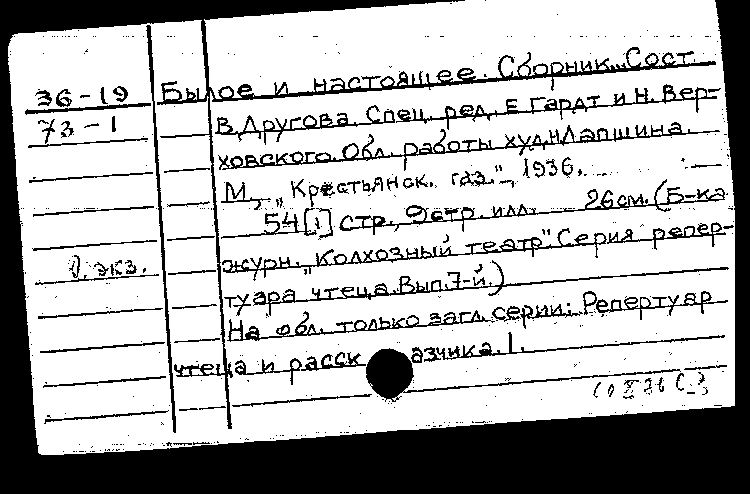 36-19 Былое и настоящее. Сборник. Сост.
73-1 В. Другова. Спец. ред. Е. Гардт и Н. Вер-
ховского. Обл. работы худ. Н. Лапшина.
М., „Крестьянск. газ.", 1936.
54 [1] стр., илл. 26 см. (Б-ка
О. экз. журн. „Колхозный театр". Серия репер-
туара чтеца. Вып. 7-й.)
На обл. только загл. серии: Репертуар
чтеца и рассказчика. 1.